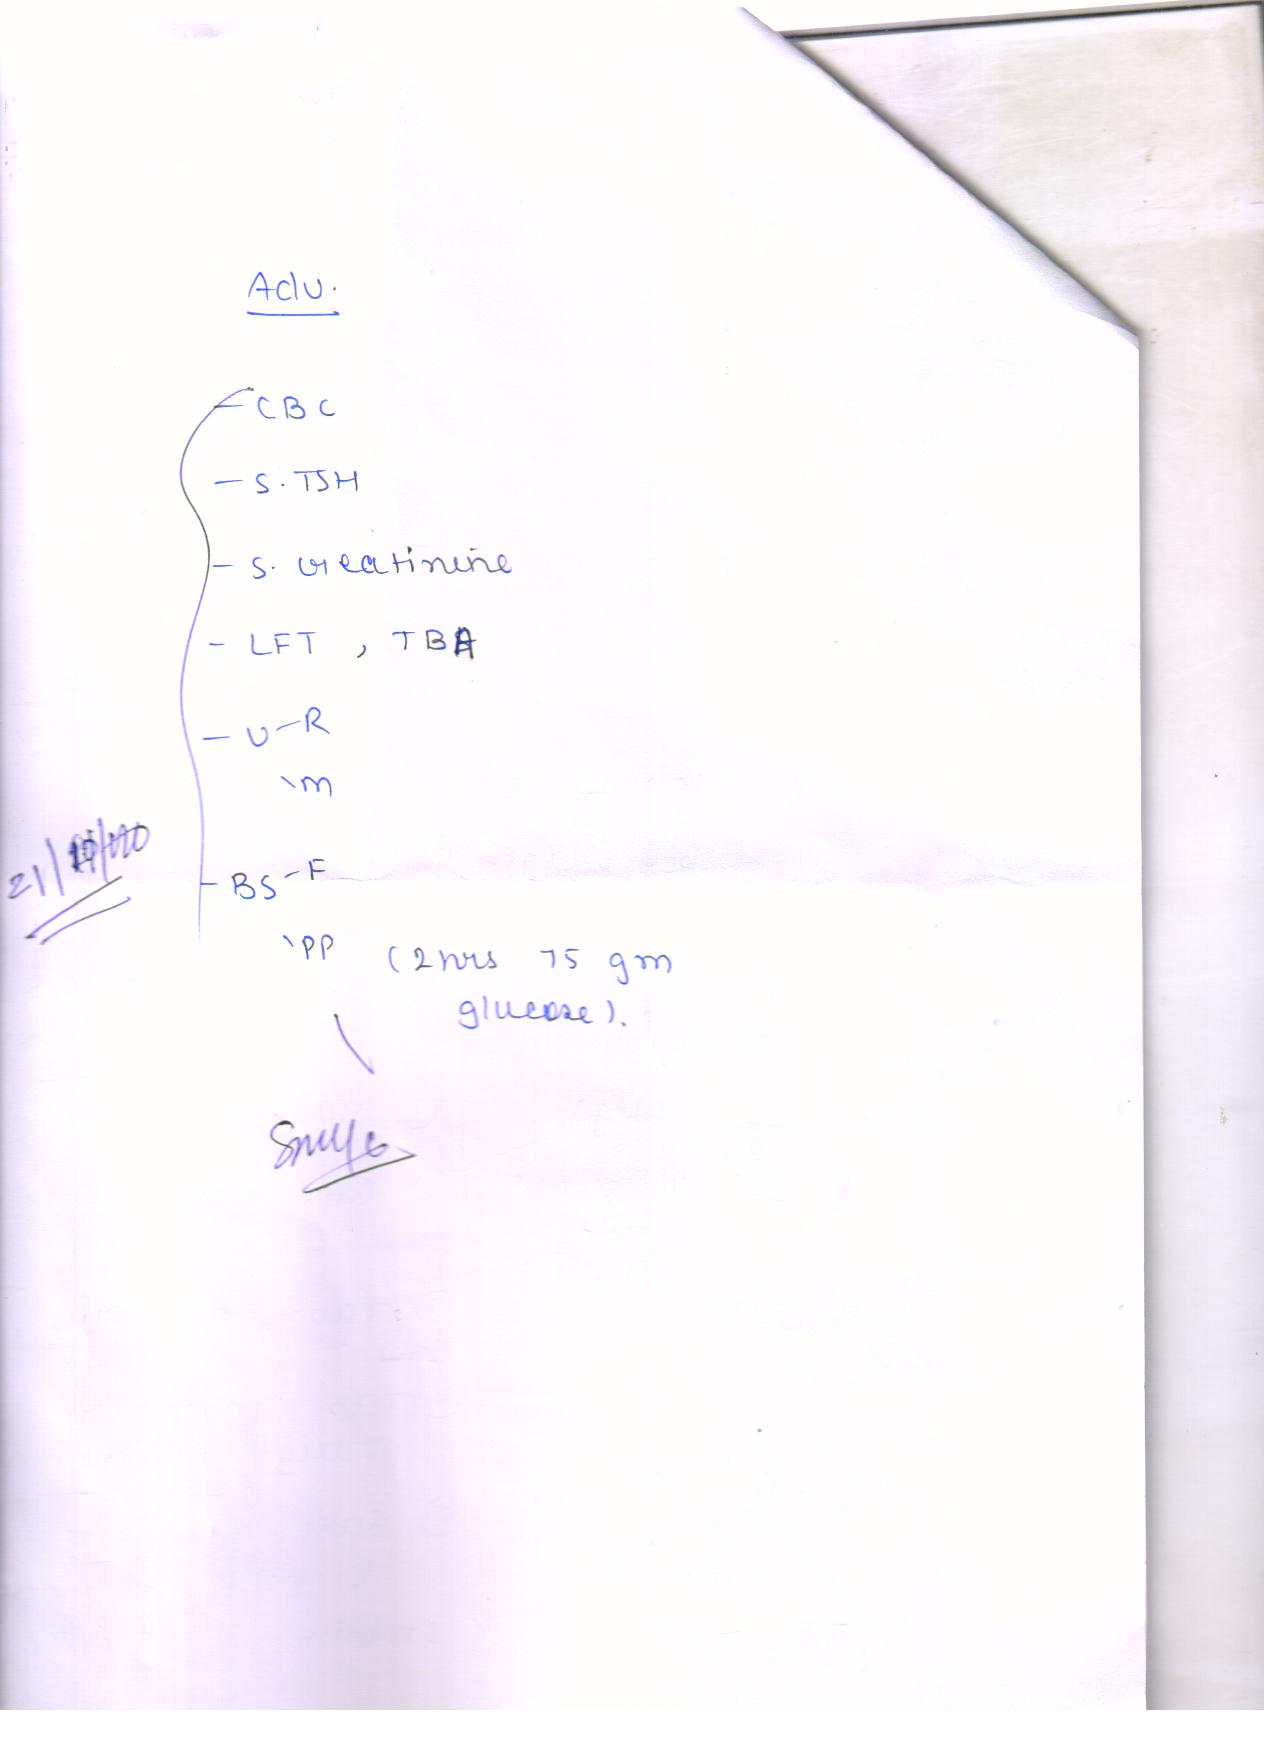 Adv.
- CBC
- S. TSH
- S. creatinine
- LFT , TBA
- U - R
\ m
- BS - F
\ PP (2 hrs 75 gm
glucose).